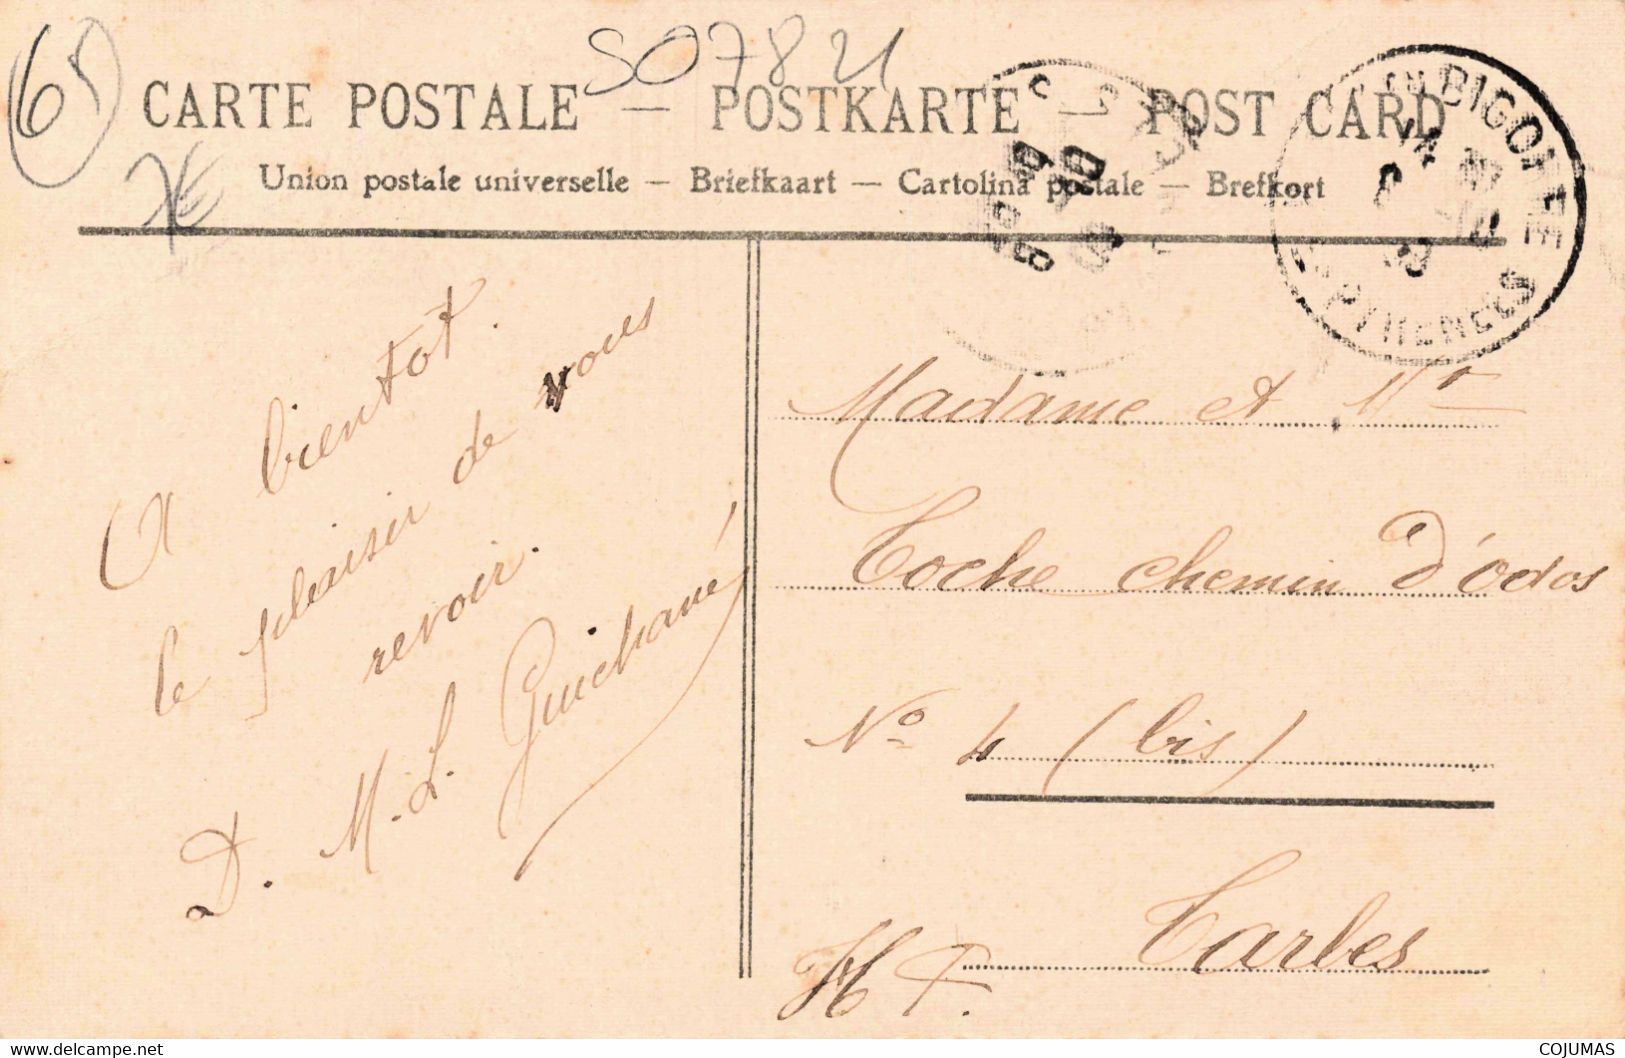 65
SO7821
CARTE POSTALE — POSTKARTE — POST CARD
Union postale universelle — Briefkaart — Cartolina postale — Brefkort
BIGORRE
PYRENEES
A bientot.
le plaisir de vous
revoir.
D. M. L. Guichané
Madame et Mr
Toche chemin d'odos
No 4 (bis)
Tarbes
H P.
COJUMAS